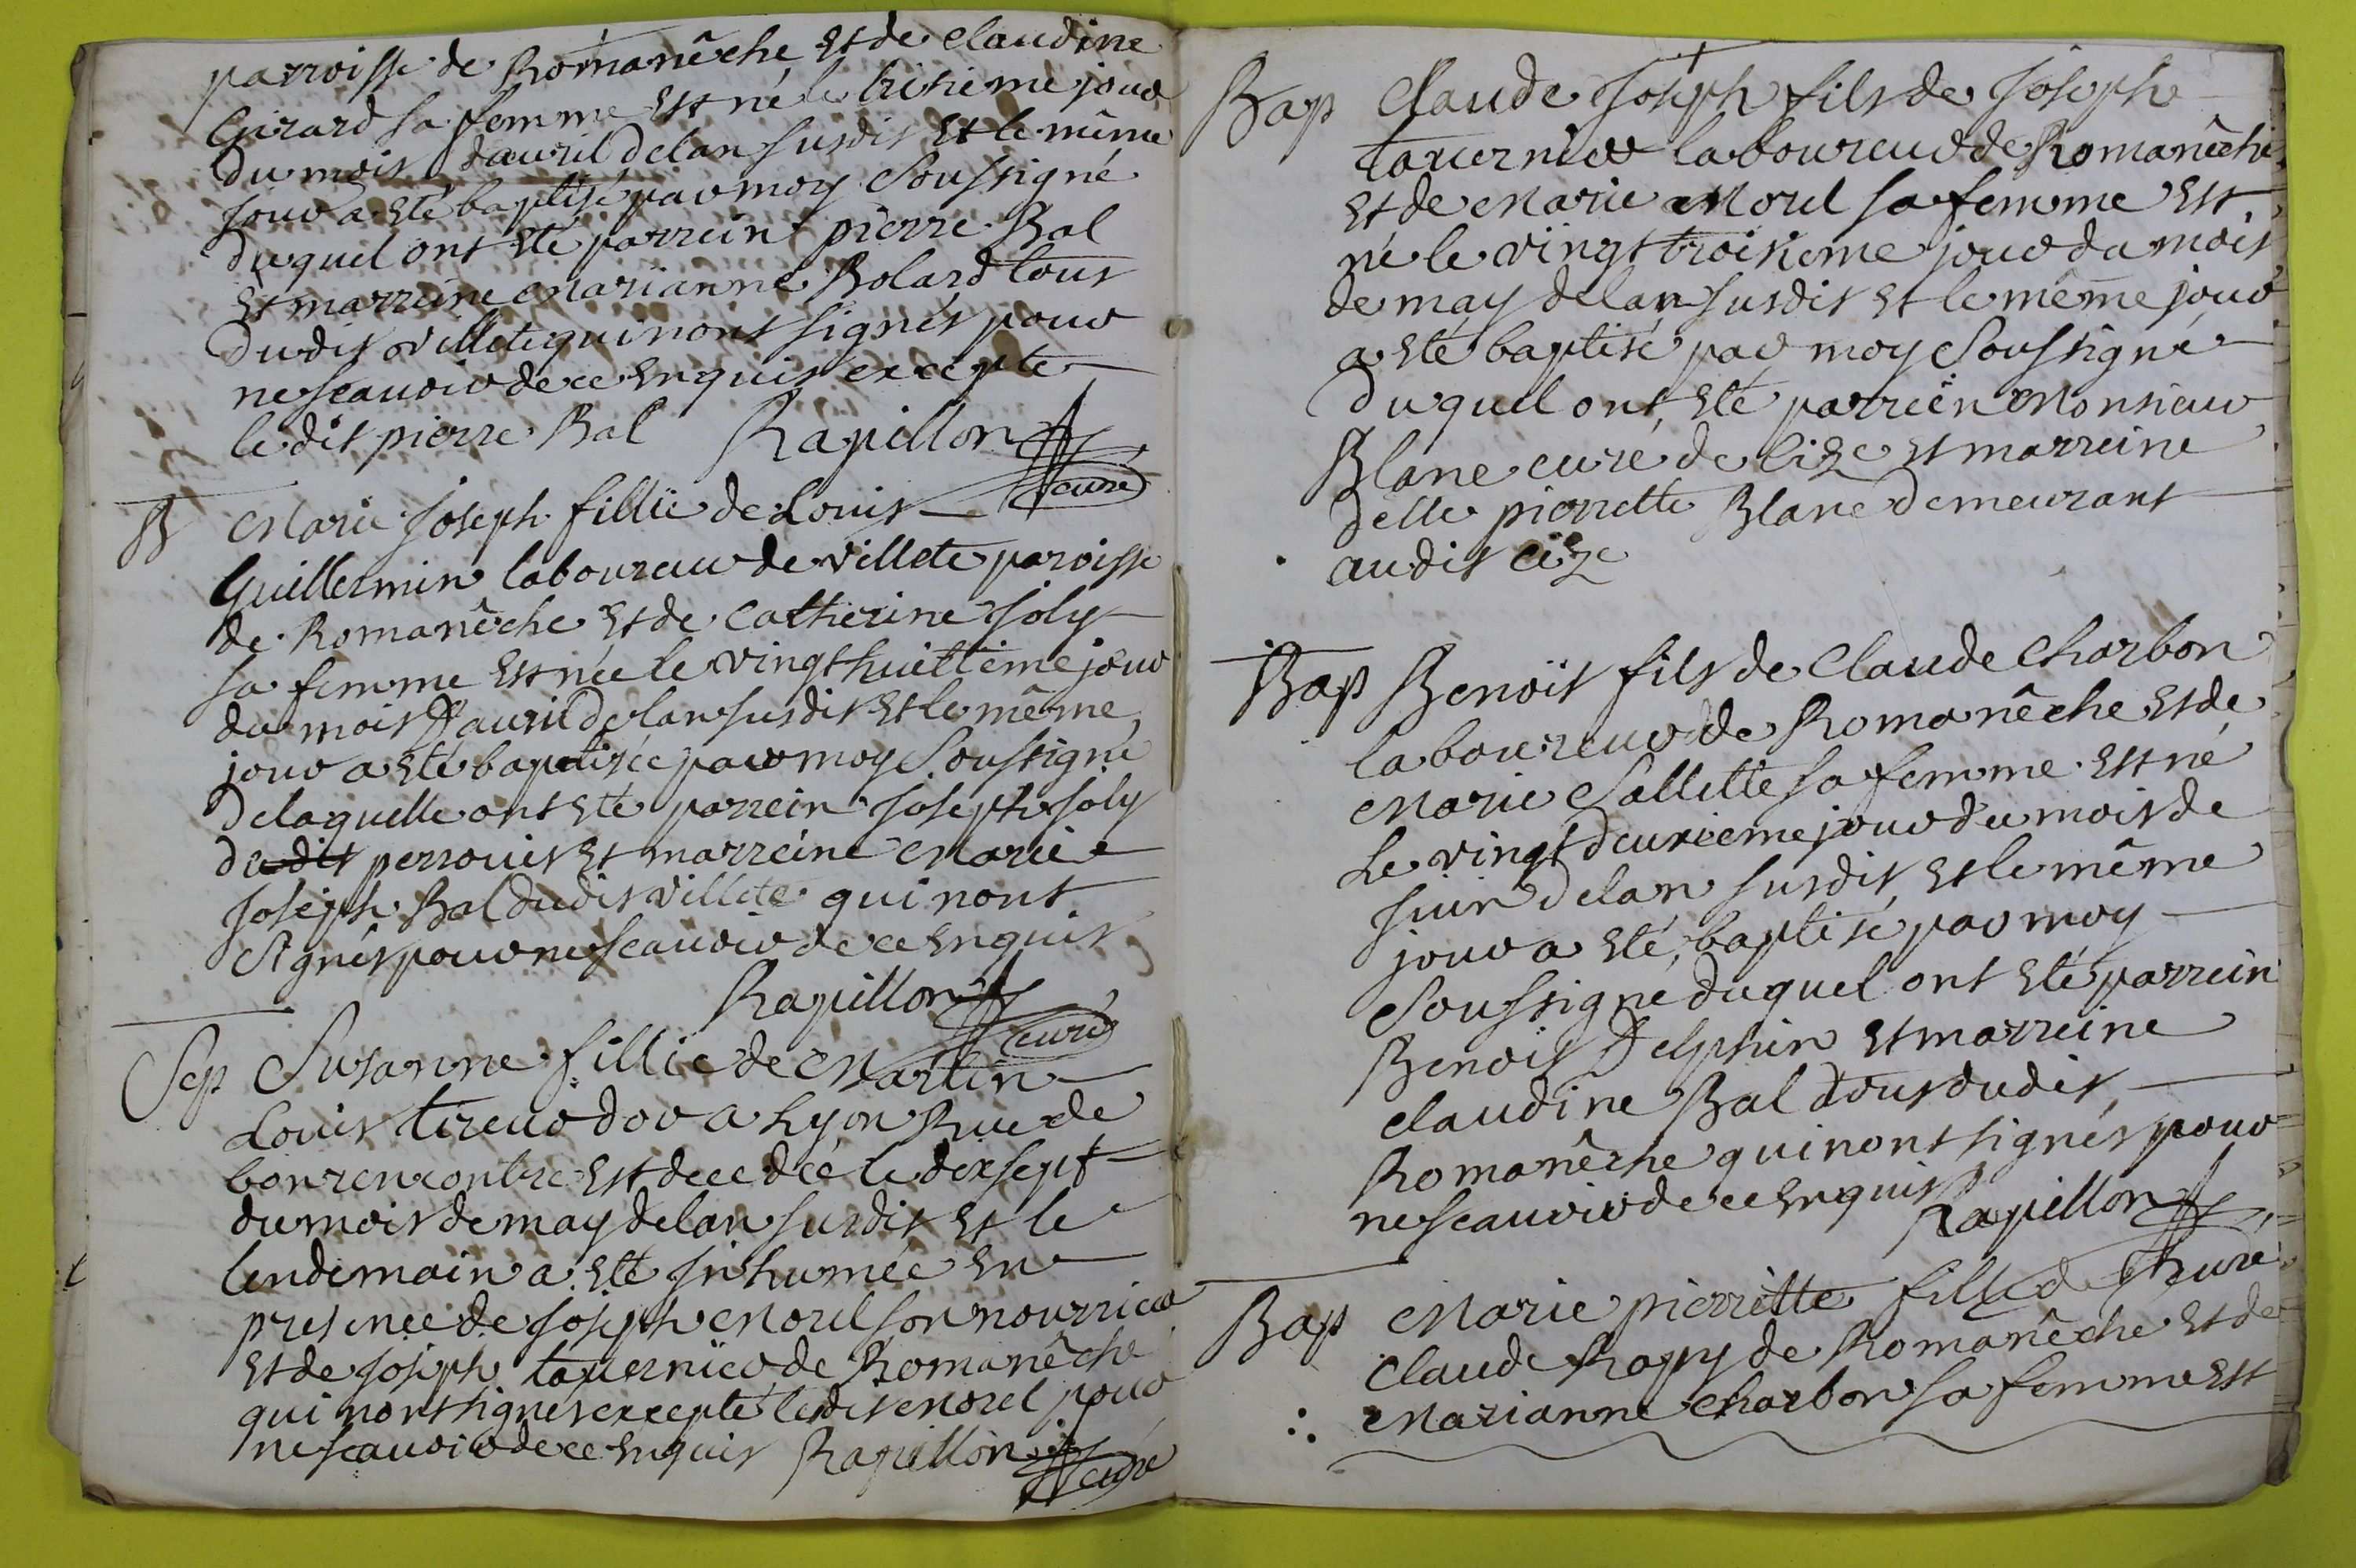 parroisse de Romanêche et de Claudine
Girard sa femme est né le trisième jour
du mois dauvril delan susdit et le même
jour a eté baptisé par moy Soussigné
duquel ont eté parrein pierre Bal
et marreine Marianne Bolard tous
dudit villete qui nont signés pour
ne scauoir de ce enquis excepte
le dit pierre Bal Rapillon
curé
B Marie Joseph fillie de Louis
Guillermin laboureur de villete paroisse
de Romanêche et de Catherine Joly
sa femme est née le vingt huittième jour
du mois dauril delan susdit et le même
jour a eté baptisée par moy Soussigné
delaquelle ont eté parrein Joseph Joly
dudit perrouis et marreine Marie
Joseph Bal dudit villete qui nont
signés pour ne scauoir de ce enquis
Rapillon
curé
Sep Susanne fillie de Martin
Louis tireur dor a Lyon Rue de
bon rencontre est decedée le dix sept
du mois de may delan susdit et le
lendemain a eté inhumée en
presence de Joseph Morel son nourricier
et de Joseph tauernier de Romanêche
qui nont signés excepté ledit Morel pour
ne scauoir de ce enquis Rapillon
curé
Bap Claude Joseph fils de Joseph
tauernier laboureur de Romanêche
et de Marie Morel sa femme est
né le vingt troisieme jour du mois
de may delan susdit et le même jour
a eté baptisé par moy Soussigné
duquel ont eté parrein Monsieur
Blanc curé de Cize et marreine
delle pierrette Blanc demeurant
audit Cize
Bap Benoit fils de Claude Charbon
laboureur de Romanêche et de
Marie Sallette sa femme est né
le vingt deuxieme jour du mois de
Juin delan susdit et le même
jour a eté baptisé par moy
Soussigné duquel ont eté parrein
Benoit Delphin et marreine
Claudine Bal tous dudit
Romanêche qui nont signés pour
ne scauoir de ce enquis Rapillon
curé
Bap Marie pierrette fille de
Claude Rapy de Romanêche et de
Marianne Charbon sa femme est